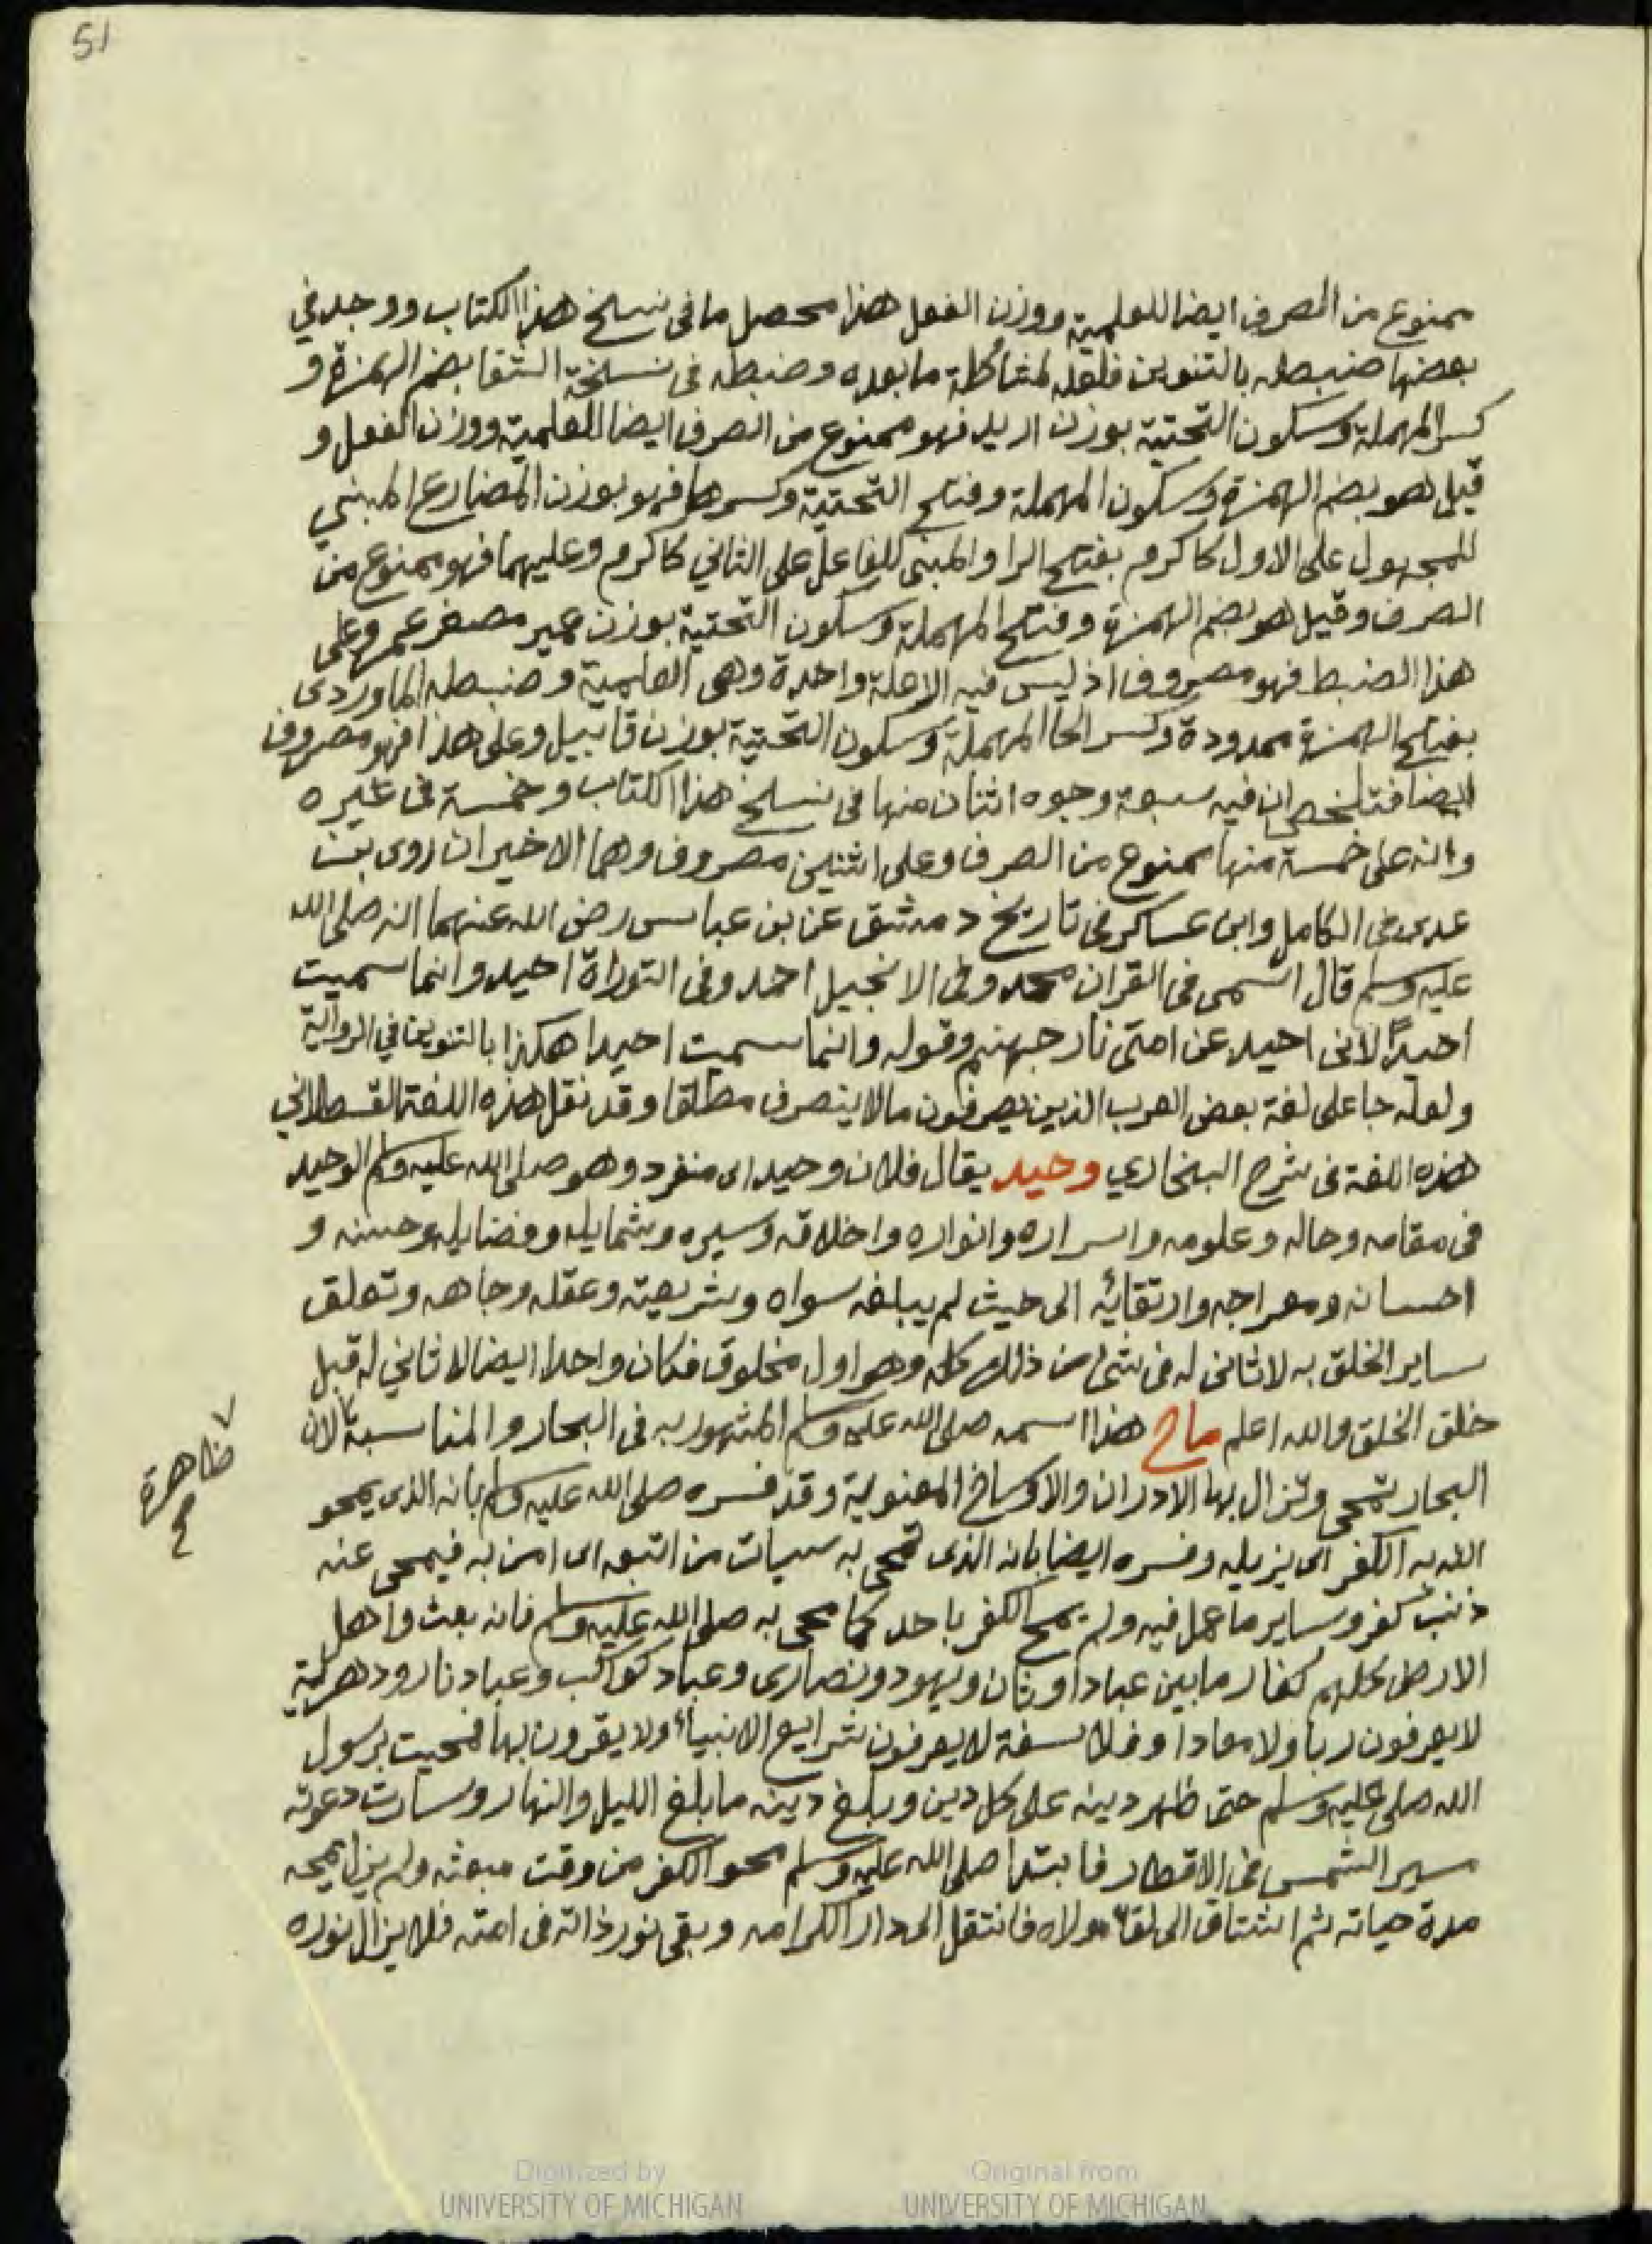 51
ممنوع من الصرف ايضا للعلمية ووزن الفعل هذا محصل ما فى نسخ هذا الكتاب ووجد في
بعضها ضبطه بالتنوين فلعله لمشاكلة ما بعده وضبطه فى نسخة الشفا بضم الهمزة و
كسر المهملة وسكون التحتية بوزن اريد فهو ممنوع من الصرف ايضا للعلمية ووزن الفعل و
قيل هو بضم الهمزة وسكون المهملة وفتح التحتية وكسرها فهو بوزن المضارع المبني
للمجهول على الاول كاكرم بفتح الرا والمبنى للفاعل على الثاني كاكرم وعليهما فهو ممنوع من
الصرف وقيل هو بضم الهمزة وفتح المهملة وسكون التحتية بوزن عمير مصغر عمر وعلى
هذا الضبط فهو مصروف اذ ليس فيه الا علة واحدة وهى العلمية وضبطه الماوردى
بفتح الهمزة ممدودة وكسر الحا المهملة وسكون التحتية بوزن قابيل وعلى هذا فهو مصروف
ايضا فتلخص ان فيه سبعة وجوه اثنان منها فى نسخ هذا الكتاب وخمسة فى غيره
وانه على خمسة منها ممنوع من الصرف وعلى اثنين مصروف وهما الاخيران روى بن
عدى فى الكامل وابن عساكر فى تاريخ دمشق عن بن عباس رضى الله عنهما انه صلى الله
عليه وسلم قال اسمى فى القران محمد وفى الانجيل احمد وفى التوراة احيد وانما سميت
احيدًا لانى احيد عن امتى نار جهنم وقوله وانما سميت احيدا هكذا بالتنوين في الرواية
ولعله جا على لغة بعض العرب الذين يصرفون مالا ينصرف مطلقا وقد نقل هذه اللغة القسطلاني
هذه اللغة فى شرح البخاري وحيد يقال فلان وحيد اى منفرد وهو صلى الله عليه وسلم الوحيد
فى مقامه وحاله وعلومه واسراره وانواره واخلاقه وسيره وشمايله وفضايله وحسنه و
احسانه ومعراجه وارتقائه الى حيث لم يبلغه سواه وشريعته وعقله وجاهه وتعلق
ساير الخلق به لا ثانى له فى شئ من ذلك كله وهو اول مخلوق فكان واحدا ايضا لا ثاني له قبل
خلق الخلق والله اعلم ماح هذا اسمه صلى الله عليه وسلم المشهور به فى البحار والمناسبة لان
ظاهرة
البحار تمحى وتزال بها الادران والاوساخ المعنوية وقد فسره صلى الله عليه وسلم بانه الذى يمحو
الله به الكفر اى يزيله وفسره ايضا بانه الذى تمحى به سيات من اتبعه اى امن به فيمحى عنه
ذنب كفر وساير ما عمل فيه ولم يمح الكفر باحد كما محى به صلى الله عليه وسلم فانه بعث واهل
الارض كلهم كفار ما بين عباد اوثان ويهود ونصارى وعباد كواكب وعباد نار ودهرية
لا يعرفون ربا ولا معادا وفلاسفة لا يعرفون شرايع الانبياء ولا يقرون بها فمحيت برسول
الله صلى عليه وسلم حتى ظهر دينه على كل دين وبلغ دينه ما بلغ الليل والنهار وسارت دعوته
سير الشمس فى الاقطار فابتدا صلى الله عليه وسلم محو الكفر من وقت مبعثه ولم يزل يمحه
مدة حياته ثم اشتاق الى لقاء مولاه فانتقل الى دار الكرامه وبقى نور ذاته فى امته فلا يزال نوره
Digitized by
UNIVERSITY OF MICHIGAN
Original from
UNIVERSITY OF MICHIGAN